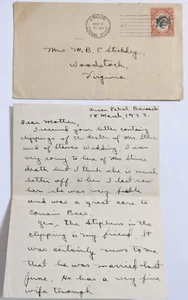 Mrs. M. B. C. Stickley,
Woodstock,
Virginia.
18 March, 1923.
Dear Mother,
I received your letter containing
clippings of the death of Mr.
and of Steve's wedding. I was
very sorry to hear of Mr.
death but I think she is much
better off. When I last saw
her she was very feeble
and was a great care to
Cousin Bess.
Yes, the Stephens in the
clipping is my friend. It
was certainly news to me
that he was married last
June. He has a very fine
wife though.